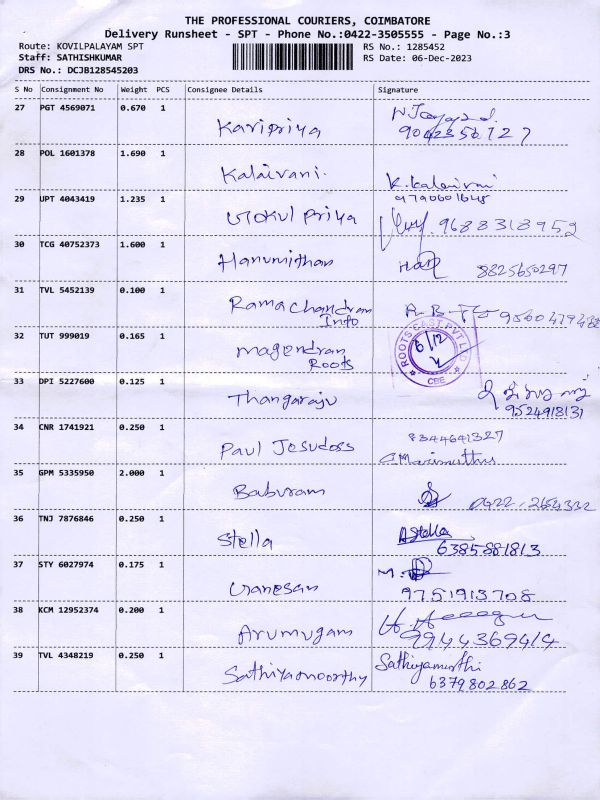 THE PROFESSIONAL COURIERS, COIMBATORE
Delivery Runsheet - SPT - Phone No.:0422-3505555 - Page No.:3
Route: KOVILPALAYAM SPT RS No.: 1285452
Staff: SATHISHKUMAR RS Date: 06-Dec-2023
DRS No.: DCJB128545203
S No Consignment No Weight PCS Consignee Details Signature
27 PGT 4569071 0.670 1
Karipriya
28 POL 1601378 1.690 1
Kalaivani. K. Kalaivani
9790601648
29 UPT 4043419 1.235 1
Gokul Priya 9688318952
30 TCG 40752373 1.600 1
Hanumithan Hari 8825650297
31 TVL 5452139 0.100 1
Ramachandran
Info
32 TUT 999019 0.165 1
Magendran
Roots
ROOTS CAST PVT LTD
6/12
CBE
33 DPI 5227600 0.125 1
Thangaraju 9524918131
34 CNR 1741921 0.250 1
Paul Jesudoss 8344641327
G. Marimuthu
35 GPM 5335950 2.000 1
Baburam 0422-2654332
36 TNJ 7876846 0.250 1
Stella A Stella
6385881813
37 STY 6027974 0.175 1
Ganesan 9751913708
38 KCM 12952374 0.200 1
Arumugam 9944369414
39 TVL 4348219 0.250 1
Sathiyamoorthy Sathiyamurthi
6379802862